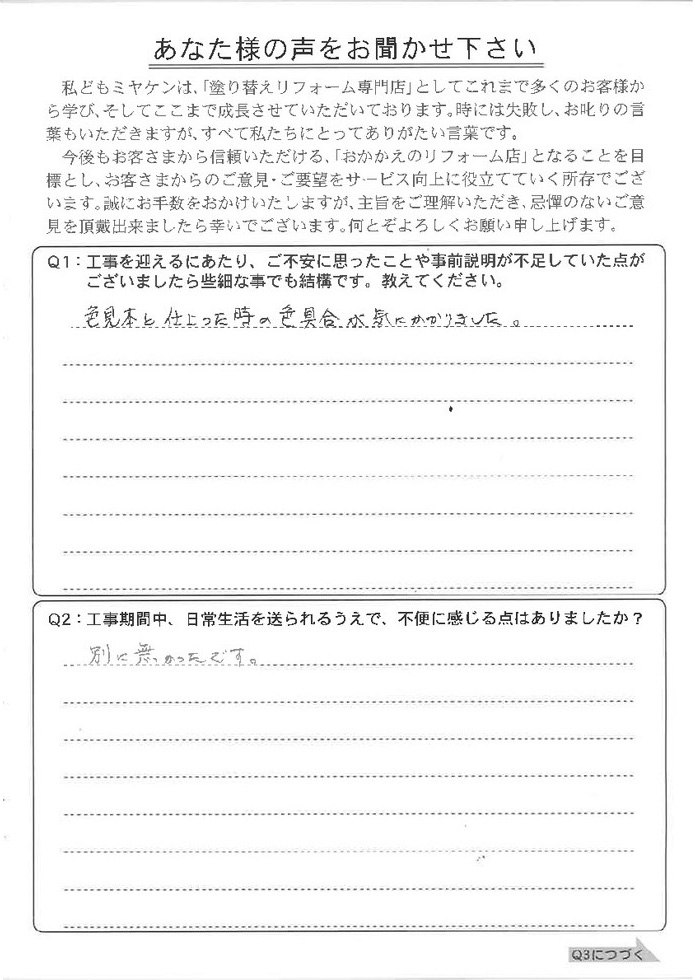 あなた様の声をお聞かせ下さい
私どもミヤケンは、「塗り替えリフォーム専門店」としてこれまで多くのお客様か
ら学び、そしてここまで成長させていただいております。時には失敗し、お叱りの言
葉もいただきますが、すべて私たちにとってありがたい言葉です。
今後もお客さまから信頼いただける、「おかかえのリフォーム店」となることを目
標とし、お客さまからのご意見・ご要望をサービス向上に役立てていく所存でござ
います。誠にお手数をおかけいたしますが、主旨をご理解いただき、忌憚のないご意
見を頂戴出来ましたら幸いでございます。何とぞよろしくお願い申し上げます。
Q1：工事を迎えるにあたり、ご不安に思ったことや事前説明が不足していた点が
ございましたら些細な事でも結構です。教えてください。
色見本と仕上った時の色具合が気にかかりました。
Q2：工事期間中、日常生活を送られるうえで、不便に感じる点はありましたか？
別に無かったです。
Q3につづく